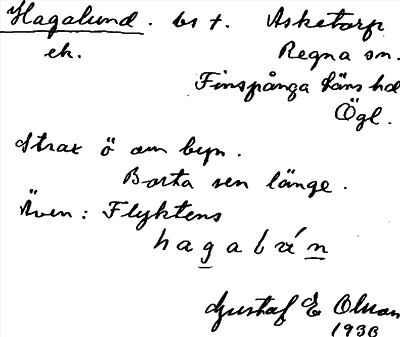 Hagalund. bs t. Asketorp
ek. Regna sn.
Finspånga läns hd
Ögl.
Strax ö om byn.
Borta sen länge.
Även: Flyktens
hagalún
Gustaf E Olsson
1930